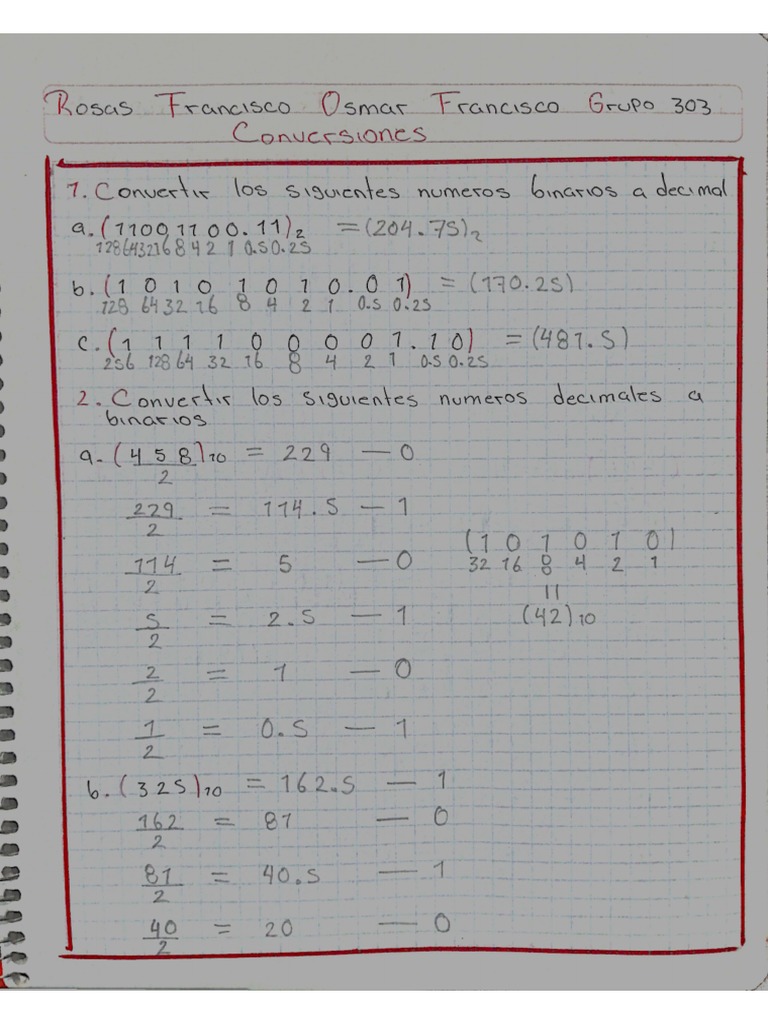 Rosas Francisco Osmar Francisco Grupo 303
Conversiones
1. Convertir los siguientes numeros binarios a decimal
a. (11001100.11)₂ = (204.75)₂
128 64 32 16 8 4 2 1 0.5 0.25
b. (1 0 1 0 1 0 1 0 . 0 1) = (170.25)
128 64 32 16 8 4 2 1 0.5 0.25
c. (1 1 1 1 0 0 0 0 1 . 1 0) = (481.5)
256 128 64 32 16 8 4 2 1 0.5 0.25
2. Convertir los siguientes numeros decimales a
binarios
a. (458)₁₀ = 229 — 0
2
229 = 114.5 — 1
2
(1 0 1 0 1 0)
114 = 5 — 0
2
32 16 8 4 2 1
||
(42)₁₀
5 = 2.5 — 1
2
2 = 1 — 0
2
1 = 0.5 — 1
2
b. (325)₁₀ = 162.5 — 1
162 = 81 — 0
2
81 = 40.5 — 1
2
40 = 20 — 0
2